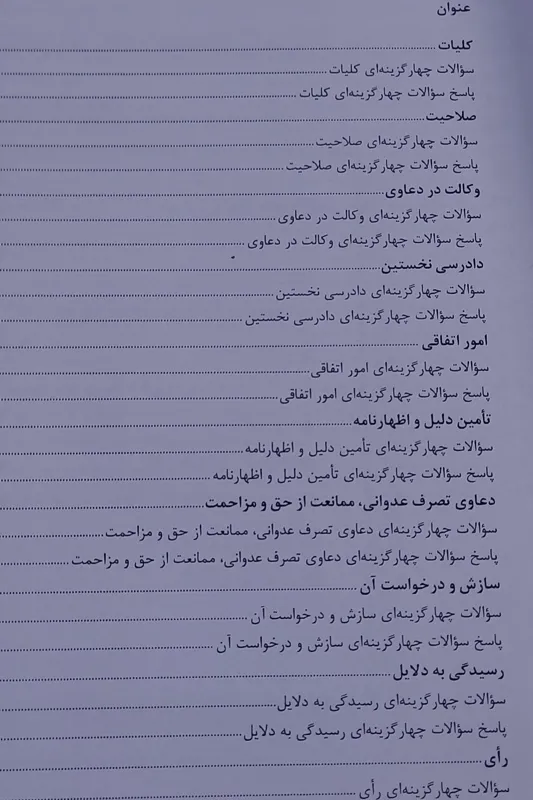 عنوان
کلیات
سؤالات چهارگزینه‌ای کلیات
پاسخ سؤالات چهارگزینه‌ای کلیات
صلاحیت
سؤالات چهارگزینه‌ای صلاحیت
پاسخ سؤالات چهارگزینه‌ای صلاحیت
وکالت در دعاوی
سؤالات چهارگزینه‌ای وکالت در دعاوی
پاسخ سؤالات چهارگزینه‌ای وکالت در دعاوی
دادرسی نخستین
سؤالات چهارگزینه‌ای دادرسی نخستین
پاسخ سؤالات چهارگزینه‌ای دادرسی نخستین
امور اتفاقی
سؤالات چهارگزینه‌ای امور اتفاقی
پاسخ سؤالات چهارگزینه‌ای امور اتفاقی
تأمین دلیل و اظهارنامه
سؤالات چهارگزینه‌ای تأمین دلیل و اظهارنامه
پاسخ سؤالات چهارگزینه‌ای تأمین دلیل و اظهارنامه
دعاوی تصرف عدوانی، ممانعت از حق و مزاحمت
سؤالات چهارگزینه‌ای دعاوی تصرف عدوانی، ممانعت از حق و مزاحمت
پاسخ سؤالات چهارگزینه‌ای دعاوی تصرف عدوانی، ممانعت از حق و مزاحمت
سازش و درخواست آن
سؤالات چهارگزینه‌ای سازش و درخواست آن
پاسخ سؤالات چهارگزینه‌ای سازش و درخواست آن
رسیدگی به دلایل
سؤالات چهارگزینه‌ای رسیدگی به دلایل
پاسخ سؤالات چهارگزینه‌ای رسیدگی به دلایل
رأی
سؤالات چهارگزینه‌ای رأی